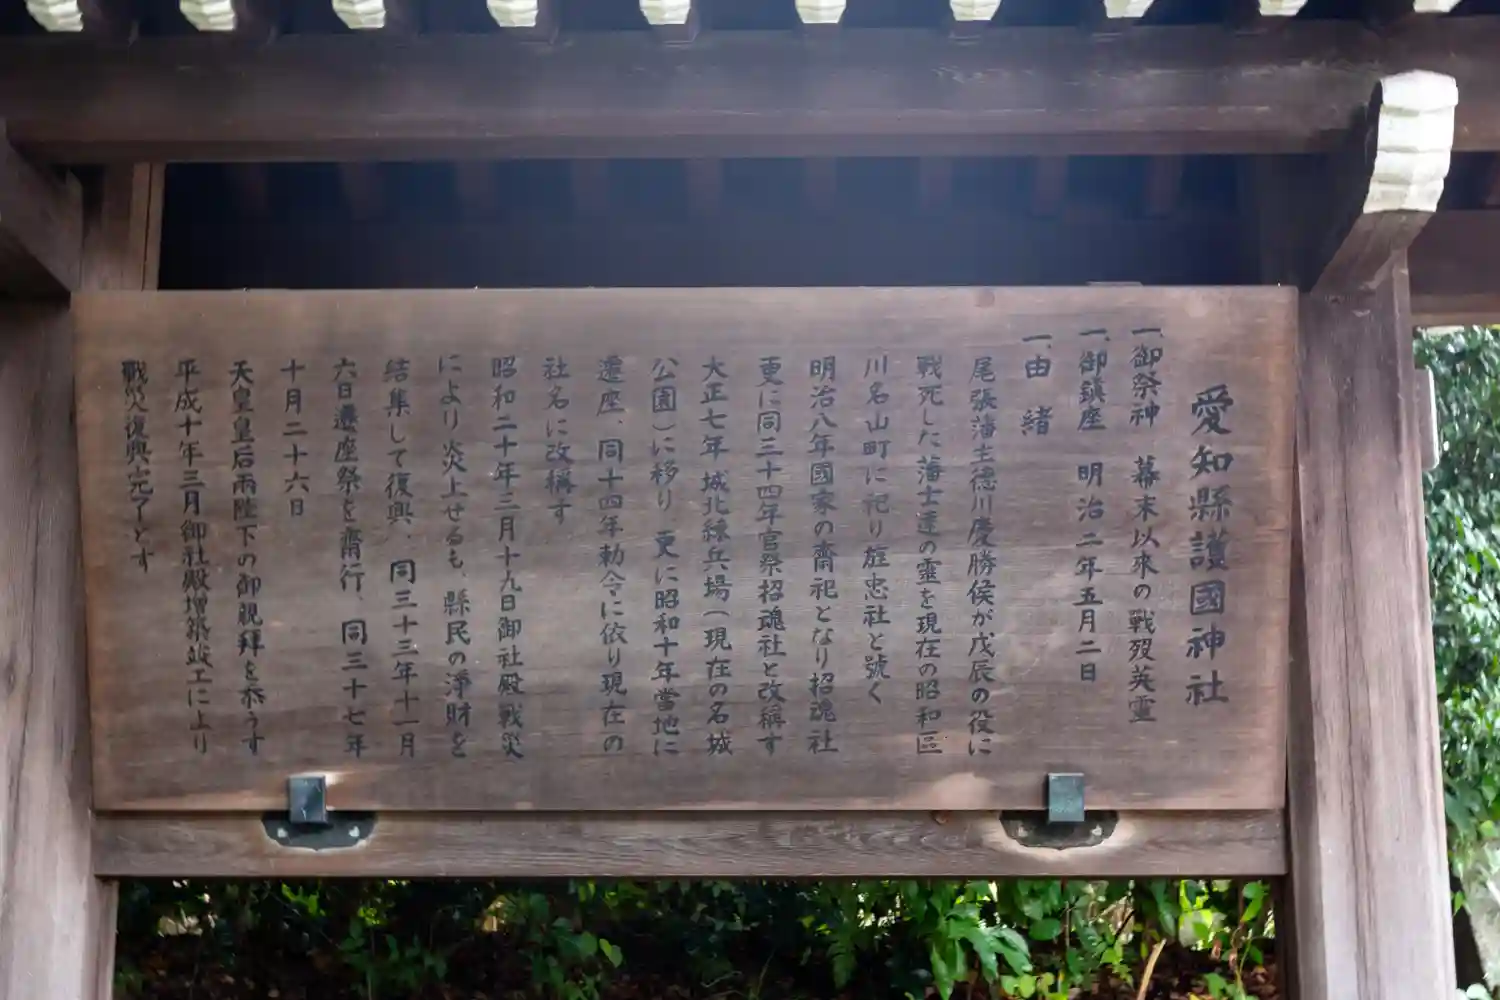 愛知縣護國神社
一、御祭神　幕末以來の戰歿英霊
一、御鎮座　明治二年五月二日
一、由緒
尾張藩主徳川慶勝侯が戊辰の役に
戦死した藩士達の霊を現在の昭和區
川名山町に祀り旌忠社と號く
明治八年國家の齋祀となり招魂社
更に同三十四年官祭招魂社と改稱す
大正七年 城北練兵場(現在の名城
公園)に移り 更に昭和十年當地に
遷座、同十四年勅令に依り現在の
社名に改稱す
昭和二十年三月十九日御社殿戦災
により炎上せるも、縣民の淨財を
結集して復興、同三十三年十一月
六日遷座祭を齋行、同三十七年
十月二十六日
天皇皇后両陛下の御親拜を忝うす
平成十年三月御社殿増築竣工により
戰災復興完了とす